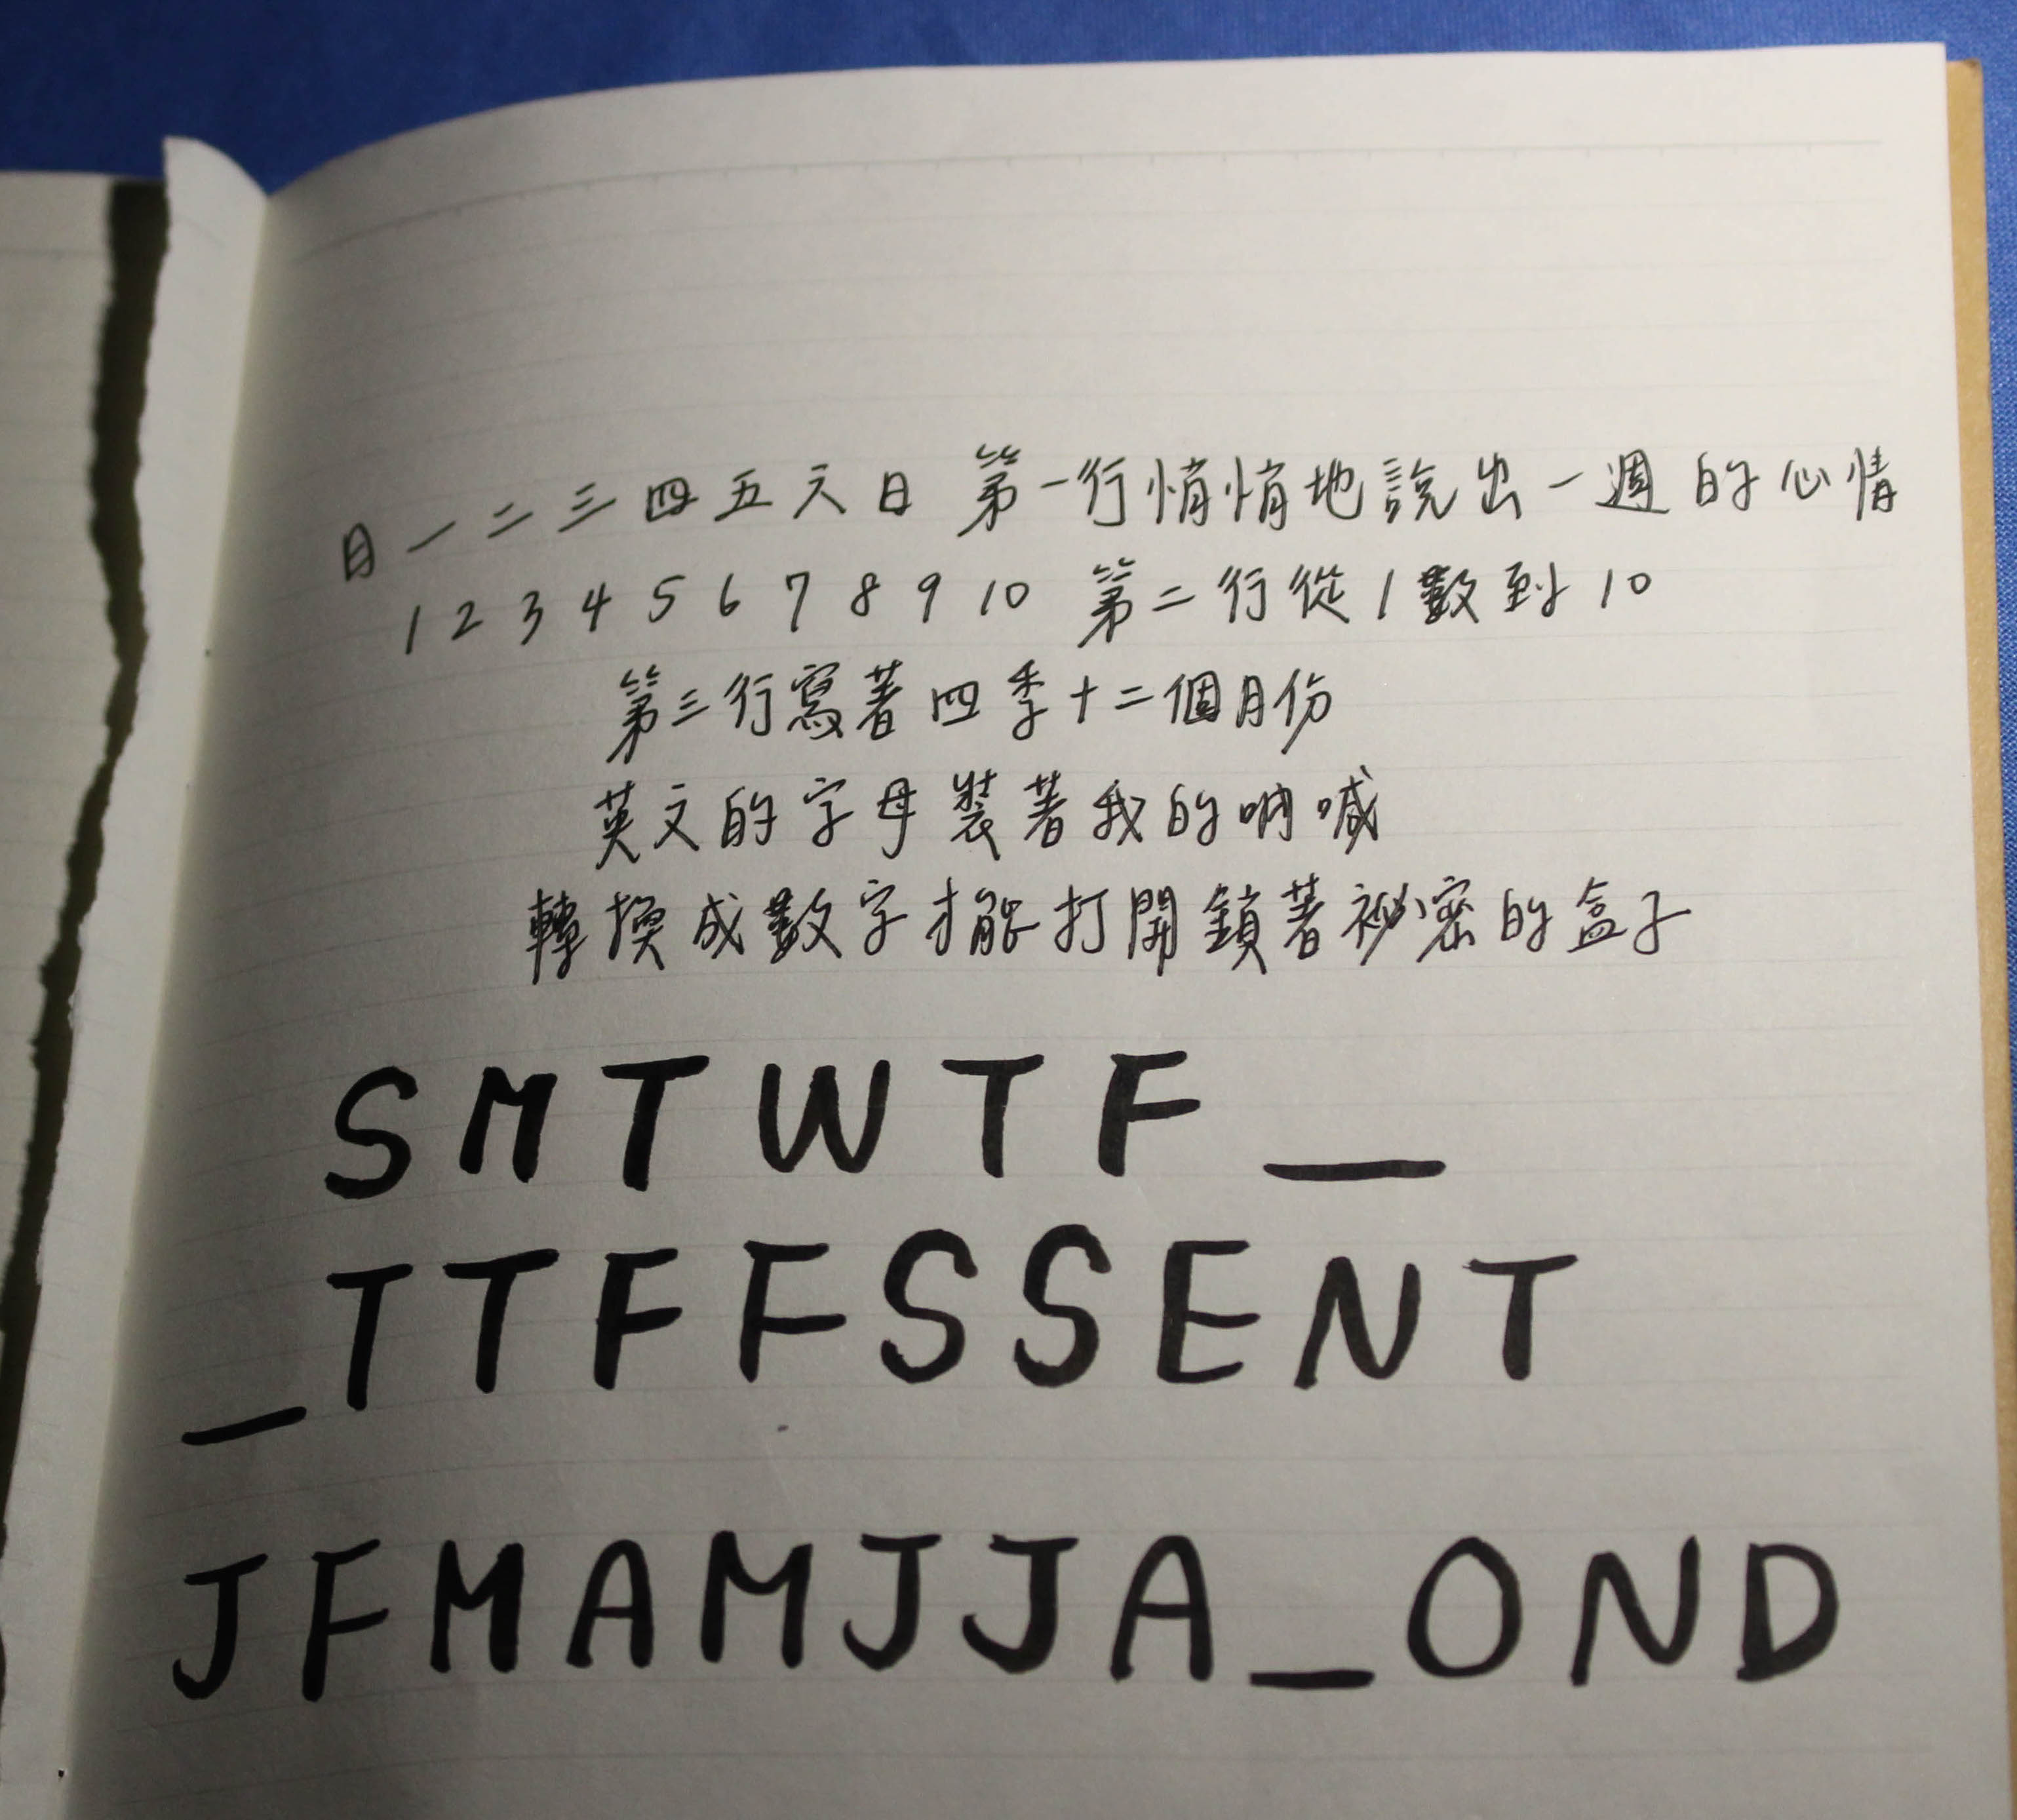 日一二三四五六日 第一行悄悄地說出一週的心情
1 2 3 4 5 6 7 8 9 10 第二行從1數到10
第三行寫著四季十二個月份
英文的字母裝著我的吶喊
轉換成數字才能打開鎖著祕密的盒子
S M T W T F _
_ T T F F S S E N T
J F M A M J J A _ O N D